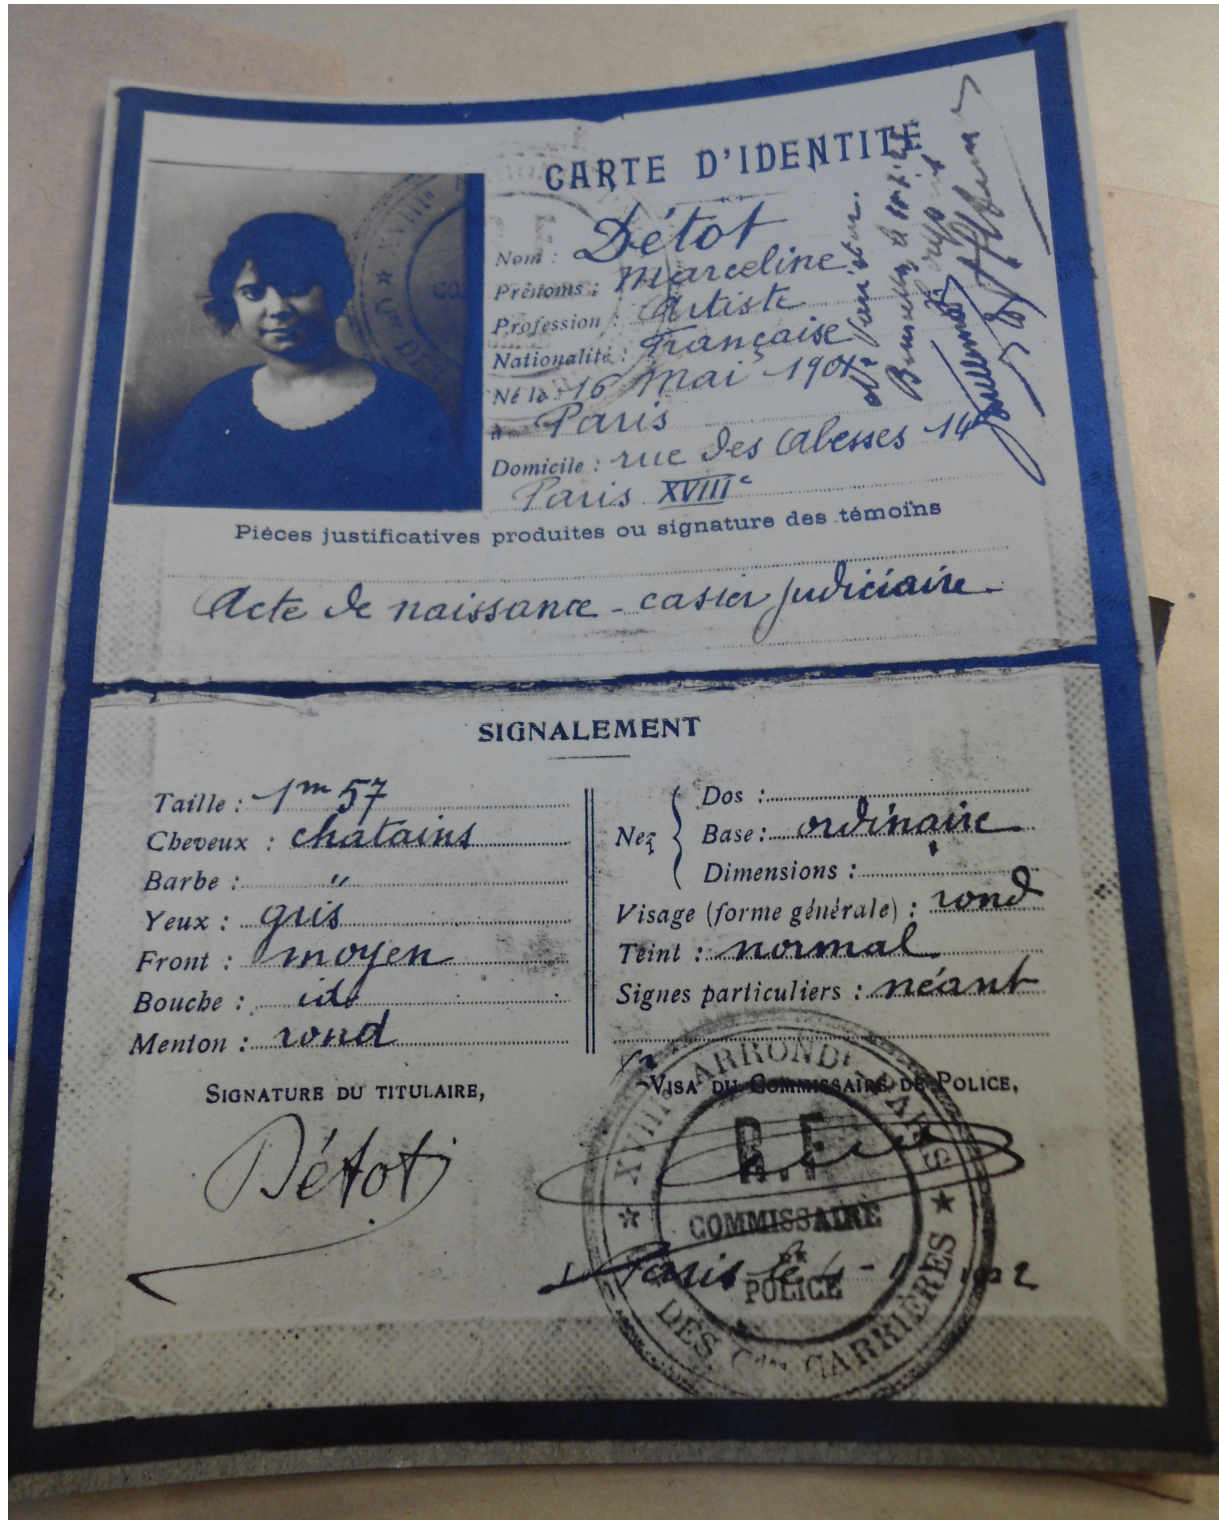 CARTE D'IDENTITÉ
Nom : Détot
Prénoms : Marceline
Profession : Artiste
Nationalité : Française
Né le 16 Mai 1901
à Paris
Domicile : rue des Abesses 14
Paris XVIIIe
Pièces justificatives produites ou signature des témoins
Acte de naissance - casier judiciaire
SIGNALEMENT
Taille : 1m 57
Cheveux : chatains
Barbe : "
Yeux : gris
Front : moyen
Bouche : id
Menton : rond
Nez
Dos :
Base : ordinaire
Dimensions :
Visage (forme générale) : rond
Teint : normal
Signes particuliers : néant
SIGNATURE DU TITULAIRE,
Détot
VISA DU COMMISSAIRE DE POLICE,
XVIIIe ARRONDt PARIS
R.F
COMMISSAIRE
DE
POLICE
DES Gdes CARRIÈRES
Paris le